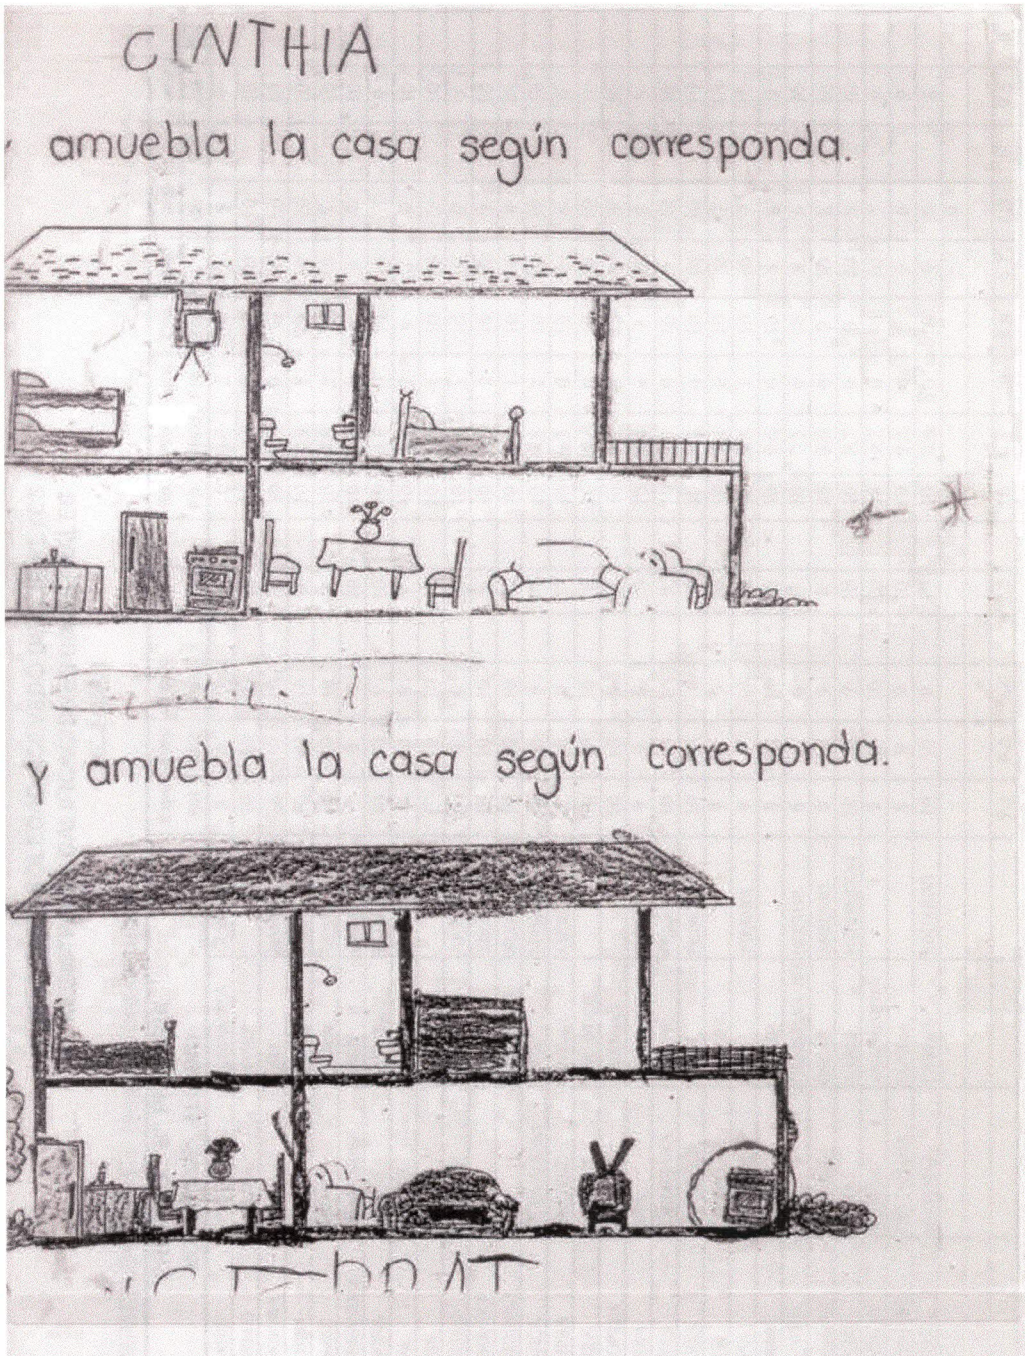 CINTHIA
amuebla la casa según corresponda.
y amuebla la casa según corresponda.